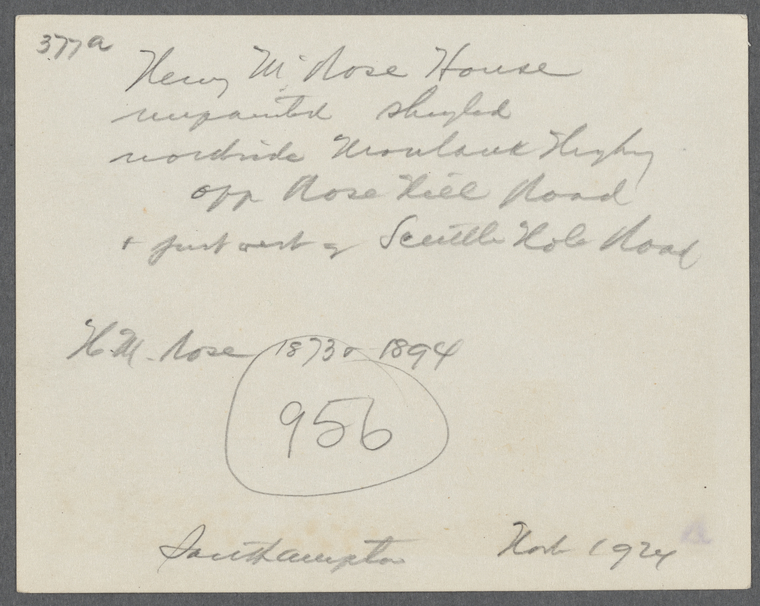 377a
Henry M. Rose House
unpainted shingled
northside Montauk Highy
opp Rose Hill Road
+ just west of Scuttle Hole Road
H. M. Rose 1873 + 1894
956
Southampton 1924